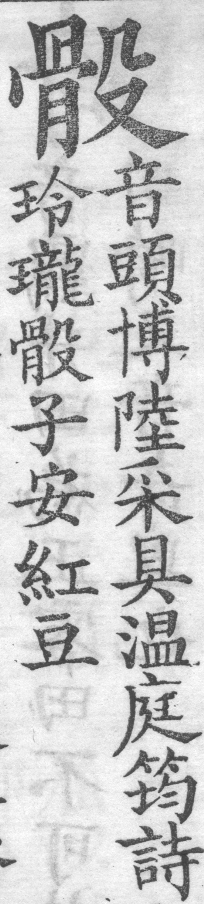 骰
音頭博陸采具温庭筠詩
玲瓏骰子安紅豆